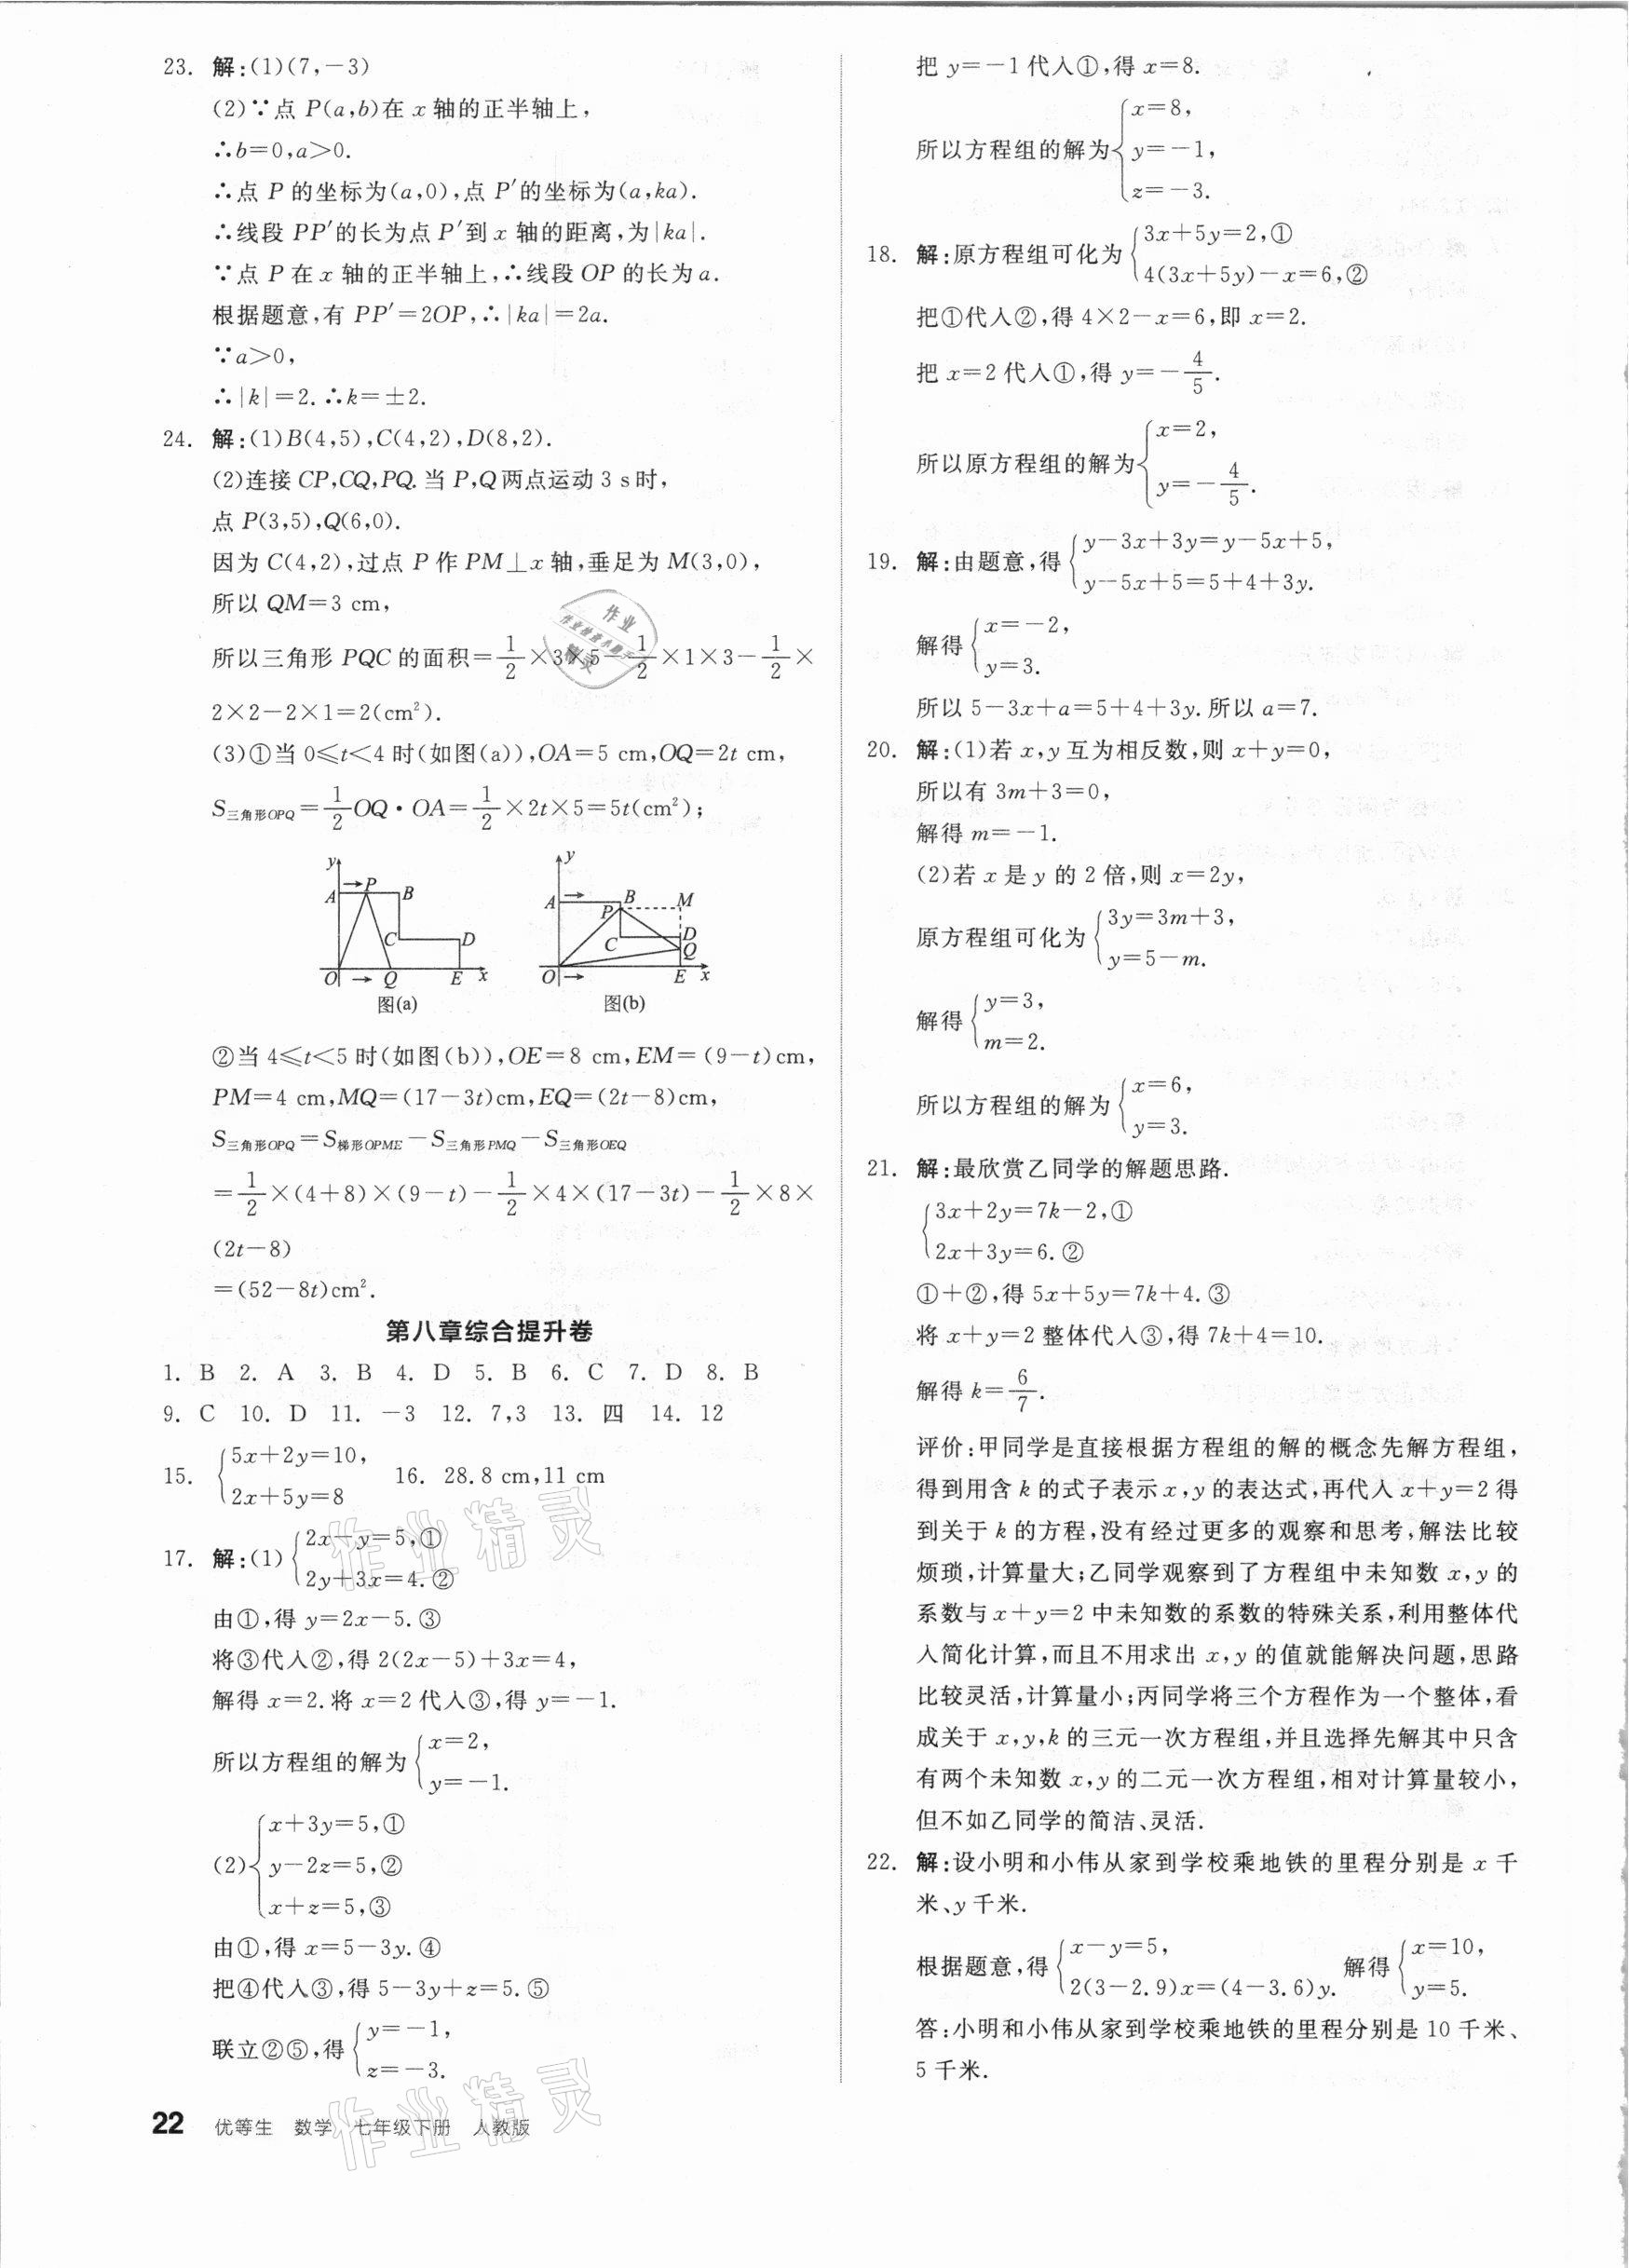 23. 解:(1)(7,-3)
(2)∵点 P(a,b)在 x 轴的正半轴上,
∴b=0,a>0.
∴点 P 的坐标为(a,0),点 P′的坐标为(a,ka).
∴线段 PP′的长为点 P′到 x 轴的距离,为|ka|.
∵点 P 在 x 轴的正半轴上,∴线段 OP 的长为 a.
根据题意,有 PP′=2OP,∴|ka|=2a.
∵a>0,
∴|k|=2.∴k=±2.
24. 解:(1)B(4,5),C(4,2),D(8,2).
(2)连接 CP,CQ,PQ.当 P,Q 两点运动 3 s 时,
点 P(3,5),Q(6,0).
因为 C(4,2),过点 P 作 PM⊥x 轴,垂足为 M(3,0),
所以 QM=3 cm,
所以三角形 PQC 的面积=1/2×3×5-1/2×1×3-1/2×
2×2-2×1=2(cm²).
(3)①当 0≤t<4 时(如图(a)),OA=5 cm,OQ=2t cm,
S三角形OPQ=1/2OQ·OA=1/2×2t×5=5t(cm²);
y A P B C D O Q E x
图(a)
y A B P M C D Q O E x
图(b)
②当 4≤t<5 时(如图(b)),OE=8 cm,EM=(9-t)cm,
PM=4 cm,MQ=(17-3t)cm,EQ=(2t-8)cm,
S三角形OPQ=S梯形OPME-S三角形PMQ-S三角形OEQ
=1/2×(4+8)×(9-t)-1/2×4×(17-3t)-1/2×8×
(2t-8)
=(52-8t)cm².
第八章综合提升卷
1. B 2. A 3. B 4. D 5. B 6. C 7. D 8. B
9. C 10. D 11. -3 12. 7,3 13. 四 14. 12
15. {5x+2y=10,
2x+5y=8 16. 28.8 cm,11 cm
17. 解:(1){2x-y=5,①
2y+3x=4.②
由①,得 y=2x-5.③
将③代入②,得 2(2x-5)+3x=4,
解得 x=2.将 x=2 代入③,得 y=-1.
所以方程组的解为{x=2,
y=-1.
(2){x+3y=5,①
y-2z=5,②
x+z=5,③
由①,得 x=5-3y.④
把④代入③,得 5-3y+z=5.⑤
联立②⑤,得{y=-1,
z=-3.
22 优等生 数学 七年级下册 人教版
把 y=-1 代入①,得 x=8.
所以方程组的解为{x=8,
y=-1,
z=-3.
18. 解:原方程组可化为{3x+5y=2,①
4(3x+5y)-x=6,②
把①代入②,得 4×2-x=6,即 x=2.
把 x=2 代入①,得 y=-4/5.
所以原方程组的解为{x=2,
y=-4/5.
19. 解:由题意,得{y-3x+3y=y-5x+5,
y-5x+5=5+4+3y.
解得{x=-2,
y=3.
所以 5-3x+a=5+4+3y.所以 a=7.
20. 解:(1)若 x,y 互为相反数,则 x+y=0,
所以有 3m+3=0,
解得 m=-1.
(2)若 x 是 y 的 2 倍,则 x=2y,
原方程组可化为{3y=3m+3,
y=5-m.
解得{y=3,
m=2.
所以方程组的解为{x=6,
y=3.
21. 解:最欣赏乙同学的解题思路.
{3x+2y=7k-2,①
2x+3y=6.②
①+②,得 5x+5y=7k+4.③
将 x+y=2 整体代入③,得 7k+4=10.
解得 k=6/7.
评价:甲同学是直接根据方程组的解的概念先解方程组,
得到用含 k 的式子表示 x,y 的表达式,再代入 x+y=2 得
到关于 k 的方程,没有经过更多的观察和思考,解法比较
烦琐,计算量大;乙同学观察到了方程组中未知数 x,y 的
系数与 x+y=2 中未知数的系数的特殊关系,利用整体代
入简化计算,而且不用求出 x,y 的值就能解决问题,思路
比较灵活,计算量小;丙同学将三个方程作为一个整体,看
成关于 x,y,k 的三元一次方程组,并且选择先解其中只含
有两个未知数 x,y 的二元一次方程组,相对计算量较小,
但不如乙同学的简洁、灵活.
22. 解:设小明和小伟从家到学校乘地铁的里程分别是 x 千
米、y 千米.
根据题意,得{x-y=5,
2(3-2.9)x=(4-3.6)y. 解得{x=10,
y=5.
答:小明和小伟从家到学校乘地铁的里程分别是 10 千米、
5 千米.
作业精灵
作业精灵
作业
精灵